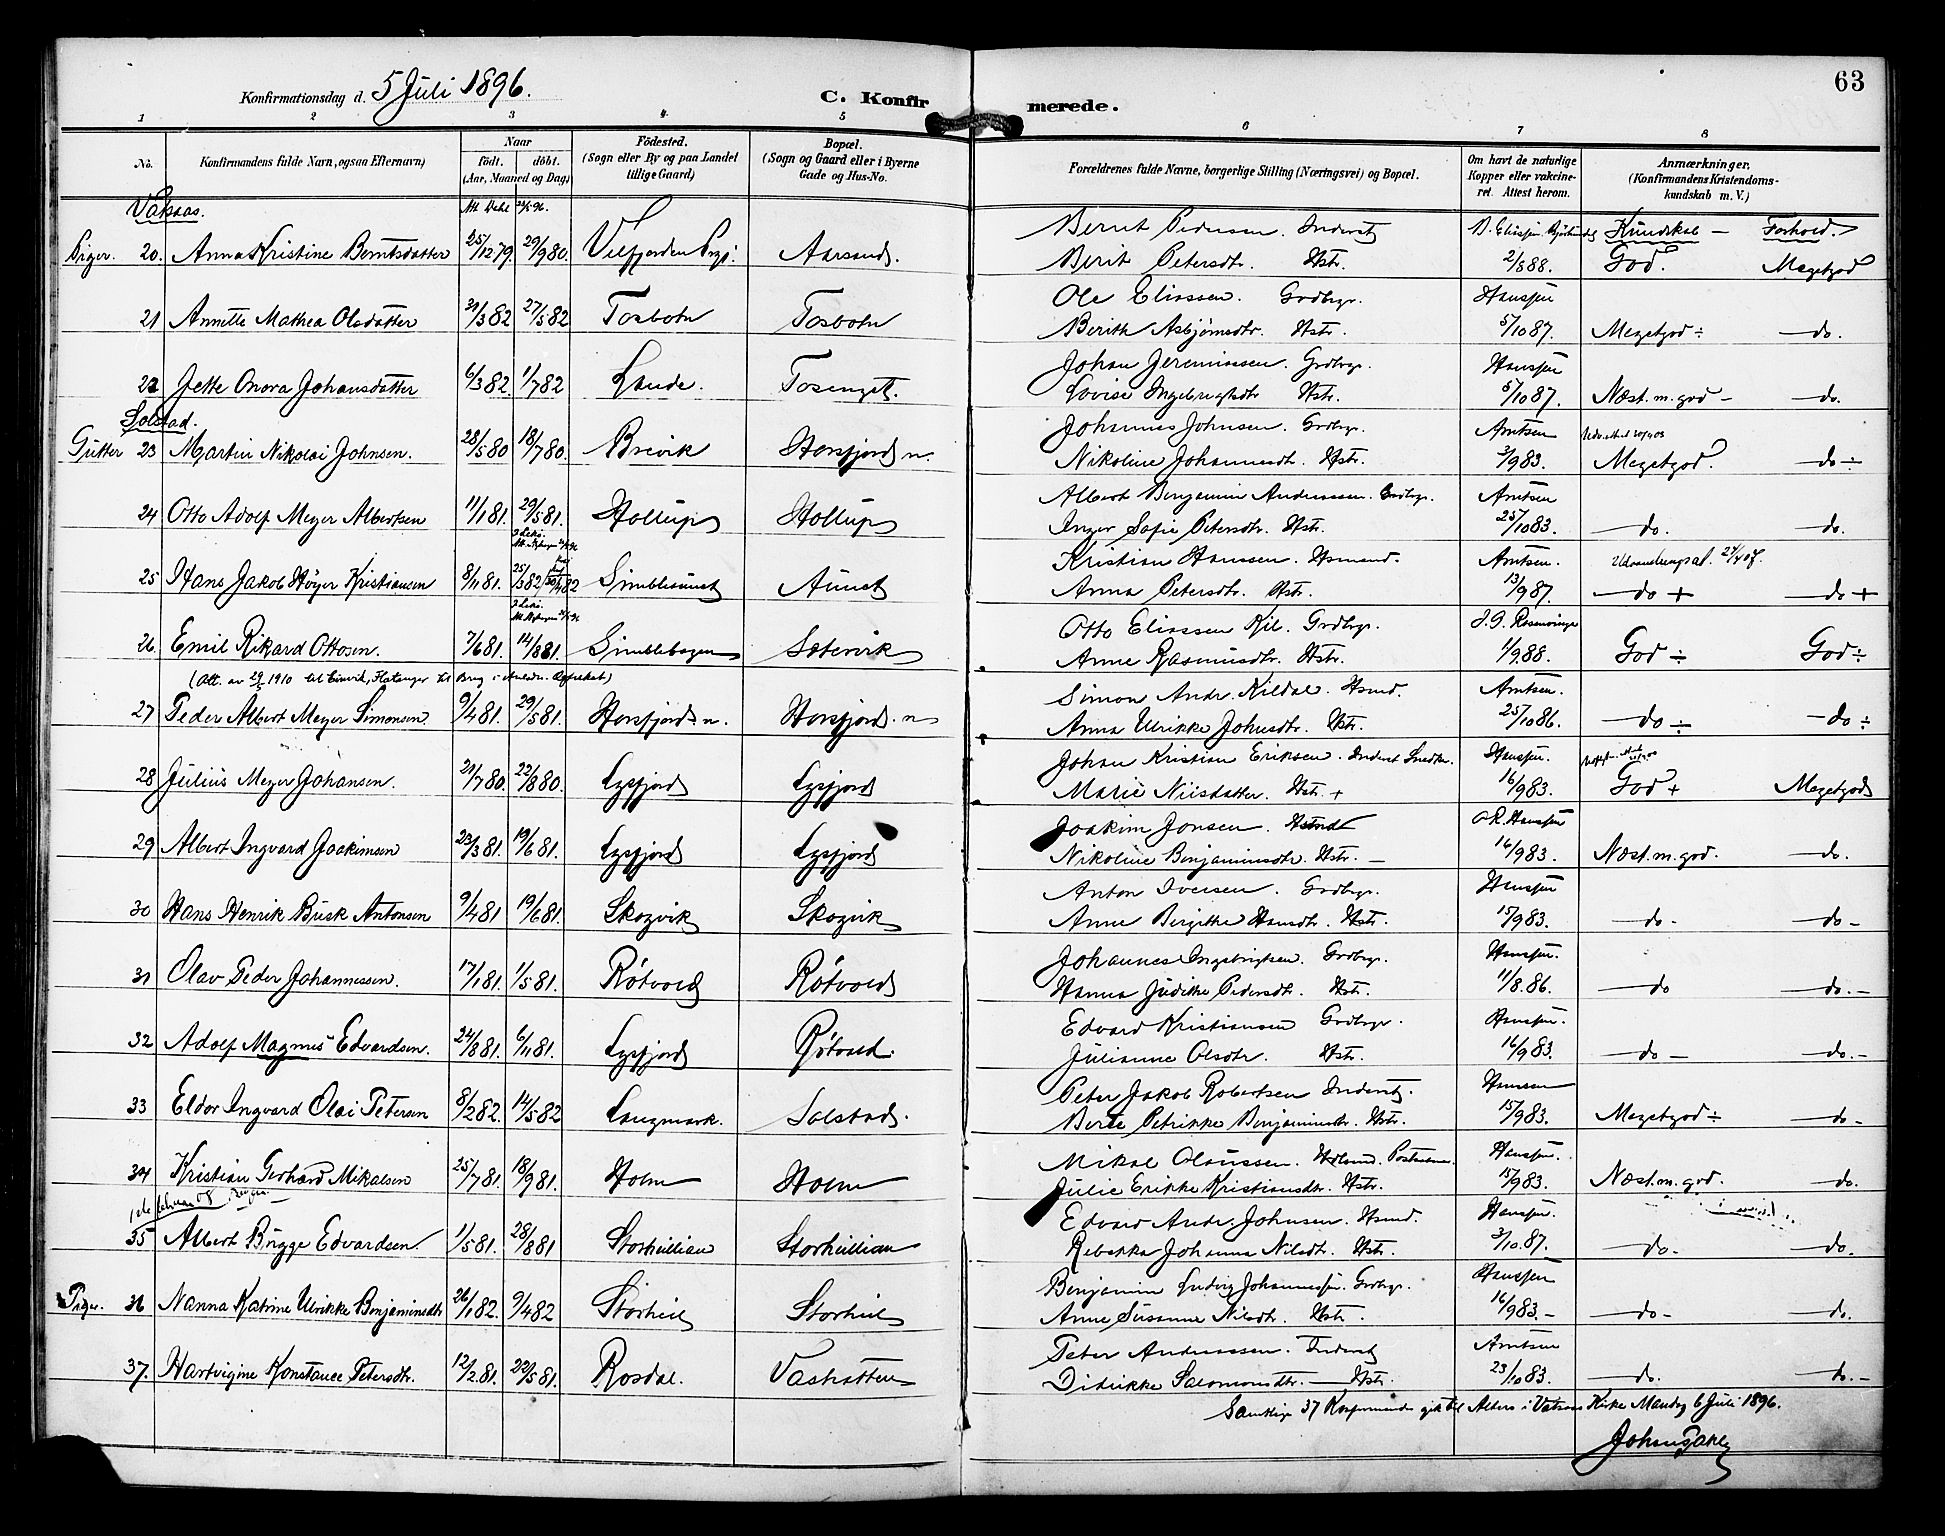 63
Konfirmationsdag d. 5 Juli 1896.
C. Konfirmerede.
1 2 3 4 5 6 7 8
No. Konfirmandens fulde Navn, ogsaa Efternavn) Naar født. døbt. (Aar, Maaned og Dag) Födested. (Sogn eller By og paa Landet tillige Gaard) Bopæl. (Sogn og Gaard eller i Byerne Gade og Hus-No. Forældrenes fulde Navne, borgerlige Stilling (Næringsvei) og Bopæl. Om havt de naturlige Kopper eller vakcineret. Attest herom. Anmærkninger. (Konfirmandens Kristendomskundskab m. V.)
Vaksaas.
Kundskab — Forhold.
Piger. 20. Anna Kristine Berntsdatter 25/12 79. 29/9 80. Velfjorden Aarsand. Bernt Pedersen. Inderst
Berit Petersdtr. Hstr. 2/8 88. God. Megetgod
21 Annette Mathea Olsdatter 31/3 82 27/5 82 Tosbotn Tosbotn Ole Eliassen. Grdbrgr. Hanssen
Berith Asbjørnsdtr. Hstr. 5/10 87. Megetgod ÷ — do.
22 Jette Onora Johansdatter 6/3 82. 1/7 82 Lande. Tosenget. Johan Jeremiassen. Grdbrgr. Hanssen
Lovise Ingebrigtsdtr Hstr. 5/10 87. Næst. m. god — do.
Solstad.
Gutter 23 Martin Nikolai Johnsen. 28/5 80 18/7 80. Brevik Horsfjord n. Johannes Johnsen. Grdbrgr. Arntsen
Nikoline Johannesdtr. Hstr. 9 83. Megetgod. — do ÷
24 Otto Adolf Meyer Albertsen 11/1 81. 29/5 81. Hollup Hollup Albert Benjamin Anderssen. Grdbrgr. Arntsen
Inger Sofie Petersdtr. Hstr. 25/10 83. — do. — do.
25 Hans Jakob Høyer Kristiansen 8/11 81. 25/3 82 Simblesund Aunet Kristian Hanssen. Hsmand. Arntsen.
Anna Petersdtr. Hstr. 13/9 87. — do + — do +
26. Emil Rikard Ottosen. 7/6 81. 14/8 81. Simblebogen Sætervik Otto Eliassen Kjil. Grdbrgr. Rosenvinge
Anne Rasmusdtr. Hstr. 1/9 88. God ÷ God ÷
27 Peder Albert Meyer Simonsen. 9/4 81. 29/5 81. Horsfjord n. Horsfjord. n Simon Andr. Kildal. Hsmd. Arntsen.
Anna Ulrikke Johnsdtr. Hstr. 25/10 86. — do ÷ — do ÷
28 Julius Meyer Johansen. 21/7 80. 22/8 80. Lysfjord Lysfjord Johan Kristian Eriksen. Inderst Snedker. Hanssen.
Marie Nilsdatter. Hstr. + 16/9 83. God + Megetgod
29 Albert Ingvard Joakimsen 23/3 81. 19/6 81. Lysfjord Lysfjord Joakim Jonsen. Hsmd Hanssen
Nikoline Benjaminsdtr. Hstr. — 16/9 83. Næst. m. god. — do.
30 Hans Henrik Busk Antonsen 9/4 81 19/6 81. Skogvik Skogvik Anton Iversen. Grdbrgr. Hanssen
Anne Birgitte Hansdtr. Hstr. 15/9 83. — do — — do —
31 Olav Peder Johannessen. 17/1 81. 1/5 81. Røtvold Røtvold Johannes Ingebrigtsen. Grdbrgr. Hanssen.
Hanna Judithe Pedersdtr. Hstr. 11/8. 86. — do — do. —
32 Adolf Magnus Edvardsen. 24/8 81. 6/11 81. Lysfjord Røtvold. Edvard Kristiansen Grdbrgr. Hanssen.
Julianne Olsdtr. Hstr. 16/9 83. — do — — do. —
33 Eldor Ingvard Olai Petersen 8/2 82. 14/5 82 Langmark. Solstad. Peter Jakob Robertsen Inderst. Hanssen
Berte Petrikke Benjaminsdtr. Hstr. 15/9 83. Megetgod ÷ — do —
34 Kristian Gerhard Mikalsen 25/7 81. 18/9 81. Holm Holm Mikal Olaussen. Hanssen.
Julie Erikke Kristiansdtr. Hstr. 15/9 83. Næst. m. god. — do.
35 Albert Brygge Edvardsen. 1/5 81. 28/8 81 Storhullian Storhullian Edvard Andr. Johnsen. Hsmd. Hanssen.
Rebekka Johanna Nilsdtr. Hstr. 3/10. 87. — do. — do.
Piger. 36 Nanna Katrine Ulrikke Benjaminsdtr 26/1 82. 9/4 82 Storheil Storheil Benjamin Ludvig Johannessen. Grdbrgr. Hanssen
Anne Susanne Nilsdtr. Hstr. 16/9 83. — do — — do.
37. Hartvigine Konstance Petersdtr. 12/2 81. 22/5 81. Rosdal. Vashatten Peter Andreassen. Inderst Arntsen
Didrikke Salomonsdtr. — Hstr. 23/10 83. — do. — do. —
Samtlige 37 Konfirmander gik til Alters i Vatsaas Kirke Mandag 6 Juli 1896.